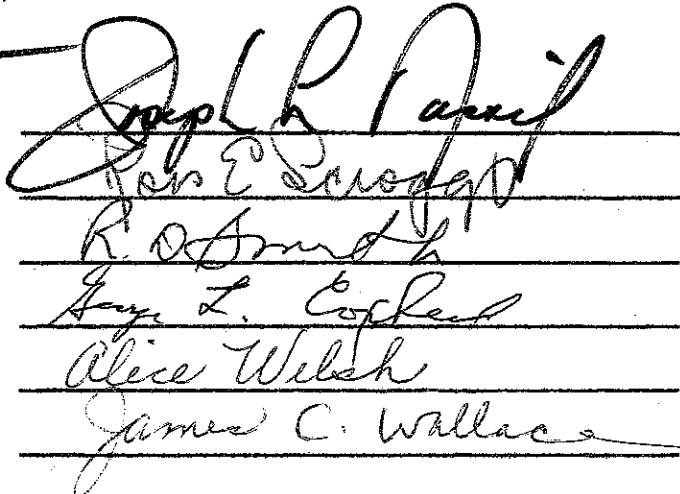 Joseph L. Nassif
Ross E Scroggs
R. D. Smith
George L. Coxhead
Alice Welsh
James C. Wallace